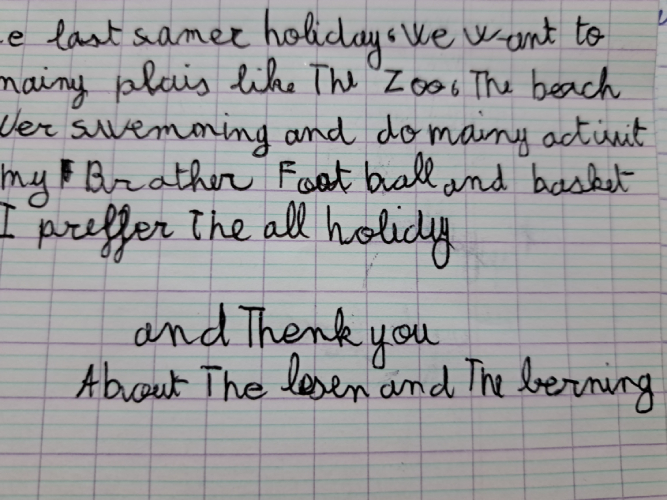 e last samer holiday, we want to
mainy plais like The Zoo, The beach
Ver swemming and do mainy activit
my Brather Foot ball and basket
I preffer The all holidy
and Thenk you
About The lesen and The berning